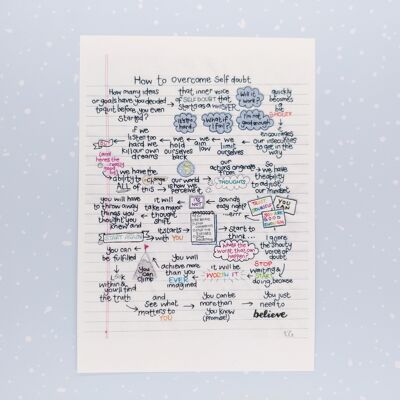 How to overcome Self doubt
How many ideas
or goals have you decided
to quit before you even
started?
that inner voice
of SELF DOUBT that
starts as a WHISPER
Will it
work?
What if
I fail?
I'm not
good enough
quickly
becomes
BIGGER
encourages
our insecurities
to get in the
way
we
aim
low
we
hold
ourselves
back
if we
listen too
hard we
kill our own
dreams
BUT
(and
here's the
really good
bit)
we have the
ability to CHANGE
ALL of this
our world
is how we
perceive it
our
actions originate
from our
THOUGHTS
So
we have
the ability
to adjust
our mindset
TRUST
YOURSELF
YOU
CAN
YOU ARE
GOOD
ENOUGH
Sounds
easy right?
...errr
IT'S
NOT
it will
take a major
thought
shift
you will have
to throw away
things you
thought you
knew and
START AGAIN
It starts
with YOU
Start to
think...
What's the
worst that can
happen?
Ignore the
shouty voice
of doubt
STOP
waiting &
START
doing, because
it will be
WORTH IT
You will
achieve more
than you
EVER
imagined
You can
climb
You can
be fulfilled
Look
within &
you'll find
the truth
and
see what
matters to
YOU
You can be
more than
you know
(promise!)
You just
need to
believe